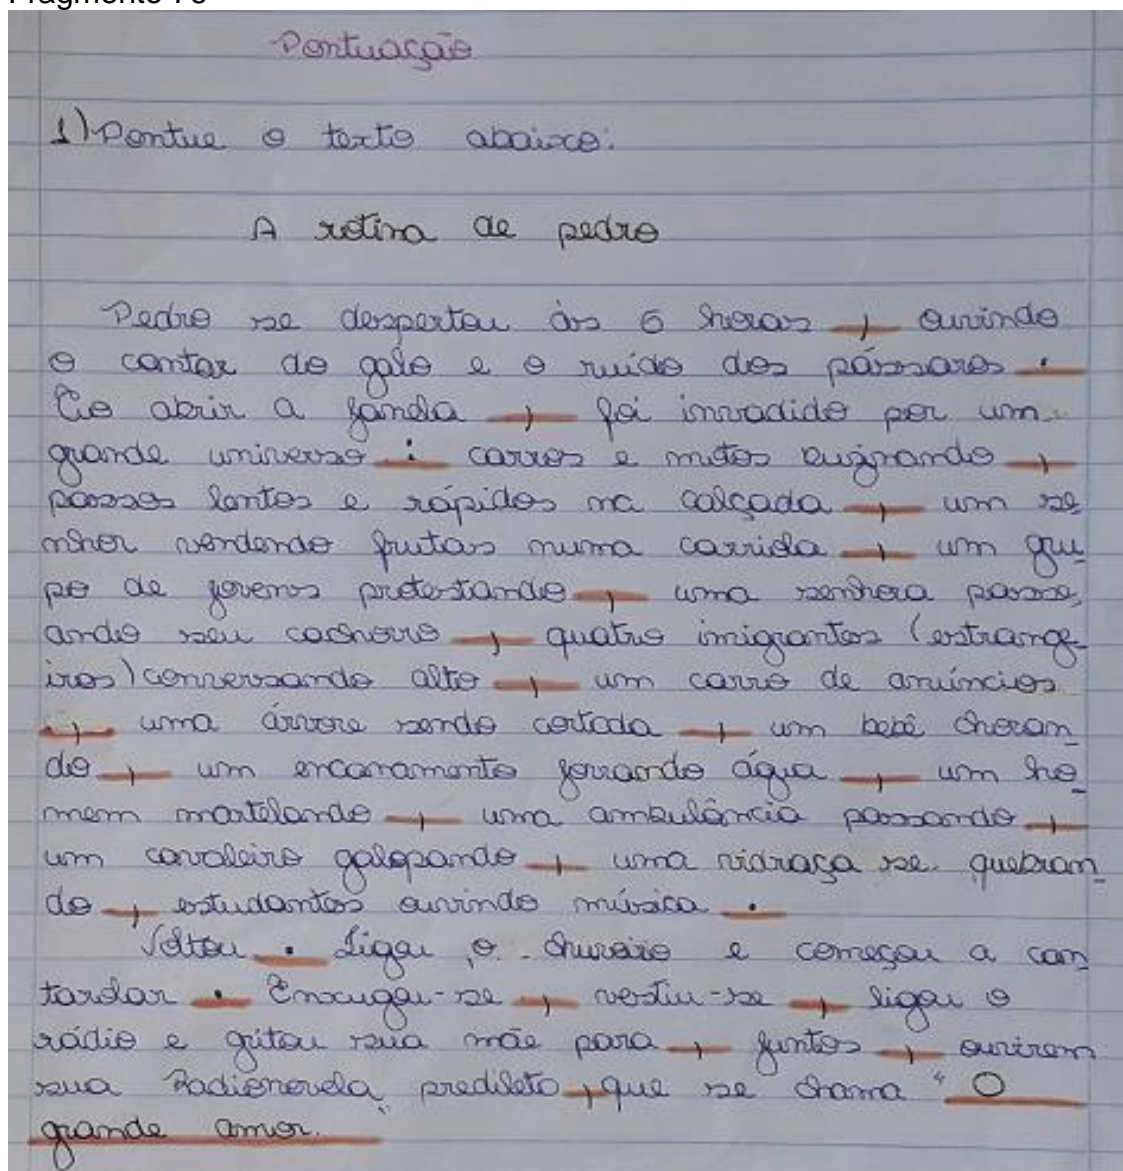 Pontuação
1) Pontue o texto abaixo:
A rotina de pedro
Pedro se despertou às 6 horas , ouvindo
o cantar do galo e o ruído dos pássaros .
Ao abrir a janela , foi invadido por um
grande universo : carros e motos buzinando ,
passos lentos e rápidos na calçada , um se
nhor vendendo frutas numa carriola , um gru
po de jovens protestando , uma senhora passe
ando seu cachorro , quatro imigrantes (estrange
iros) conversando alto , um carro de anúncios
, uma árvore sendo cortada , um bebê choran
do , um encanamento jorrando água , um ho
mem martelando , uma ambulância passando ,
um cavaleiro galopando , uma vidraça se quebran
do , estudantes ouvindo música .
Voltou . Ligou o chuveiro e começou a can
tarolar . Enxugou-se , vestiu-se , ligou o
rádio e gritou sua mãe para , juntos , ouvirem
sua Radionovela predileto , que se chama " O
grande amor. "